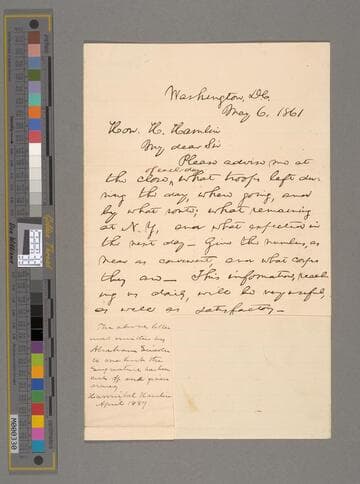 Washington, DC.
May 6, 1861
Hon. H. Hamlin
My dear Sir
Please advise me at
the close of each day, what troops left du-
ring the day, where going, and
by what route, what remaining
at N.Y., and what expected in
the next day— Give the numbers, as
near as convenient, and what corps
they are— This information, reach-
ing us daily, will be very useful,
as well as satisfactory—
The above letter
was written by
Abraham Lincoln
to me but the
Signature has been
cut off and given
away
Hannibal Hamlin
April 1887